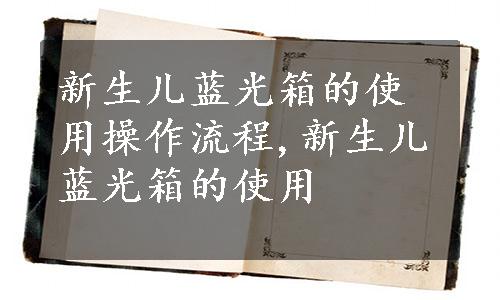 新生儿蓝光箱的使
用操作流程,新生儿
蓝光箱的使用